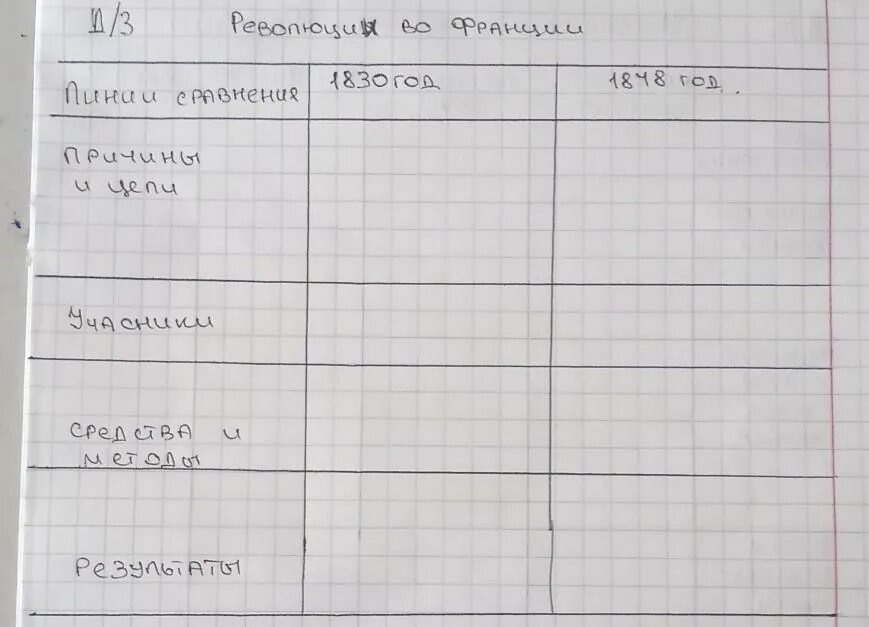 Д/З Революции во Франции
Линии сравнения 1830 год 1848 год.
Причины
и цели
Учасники
средства и
методы
Результаты